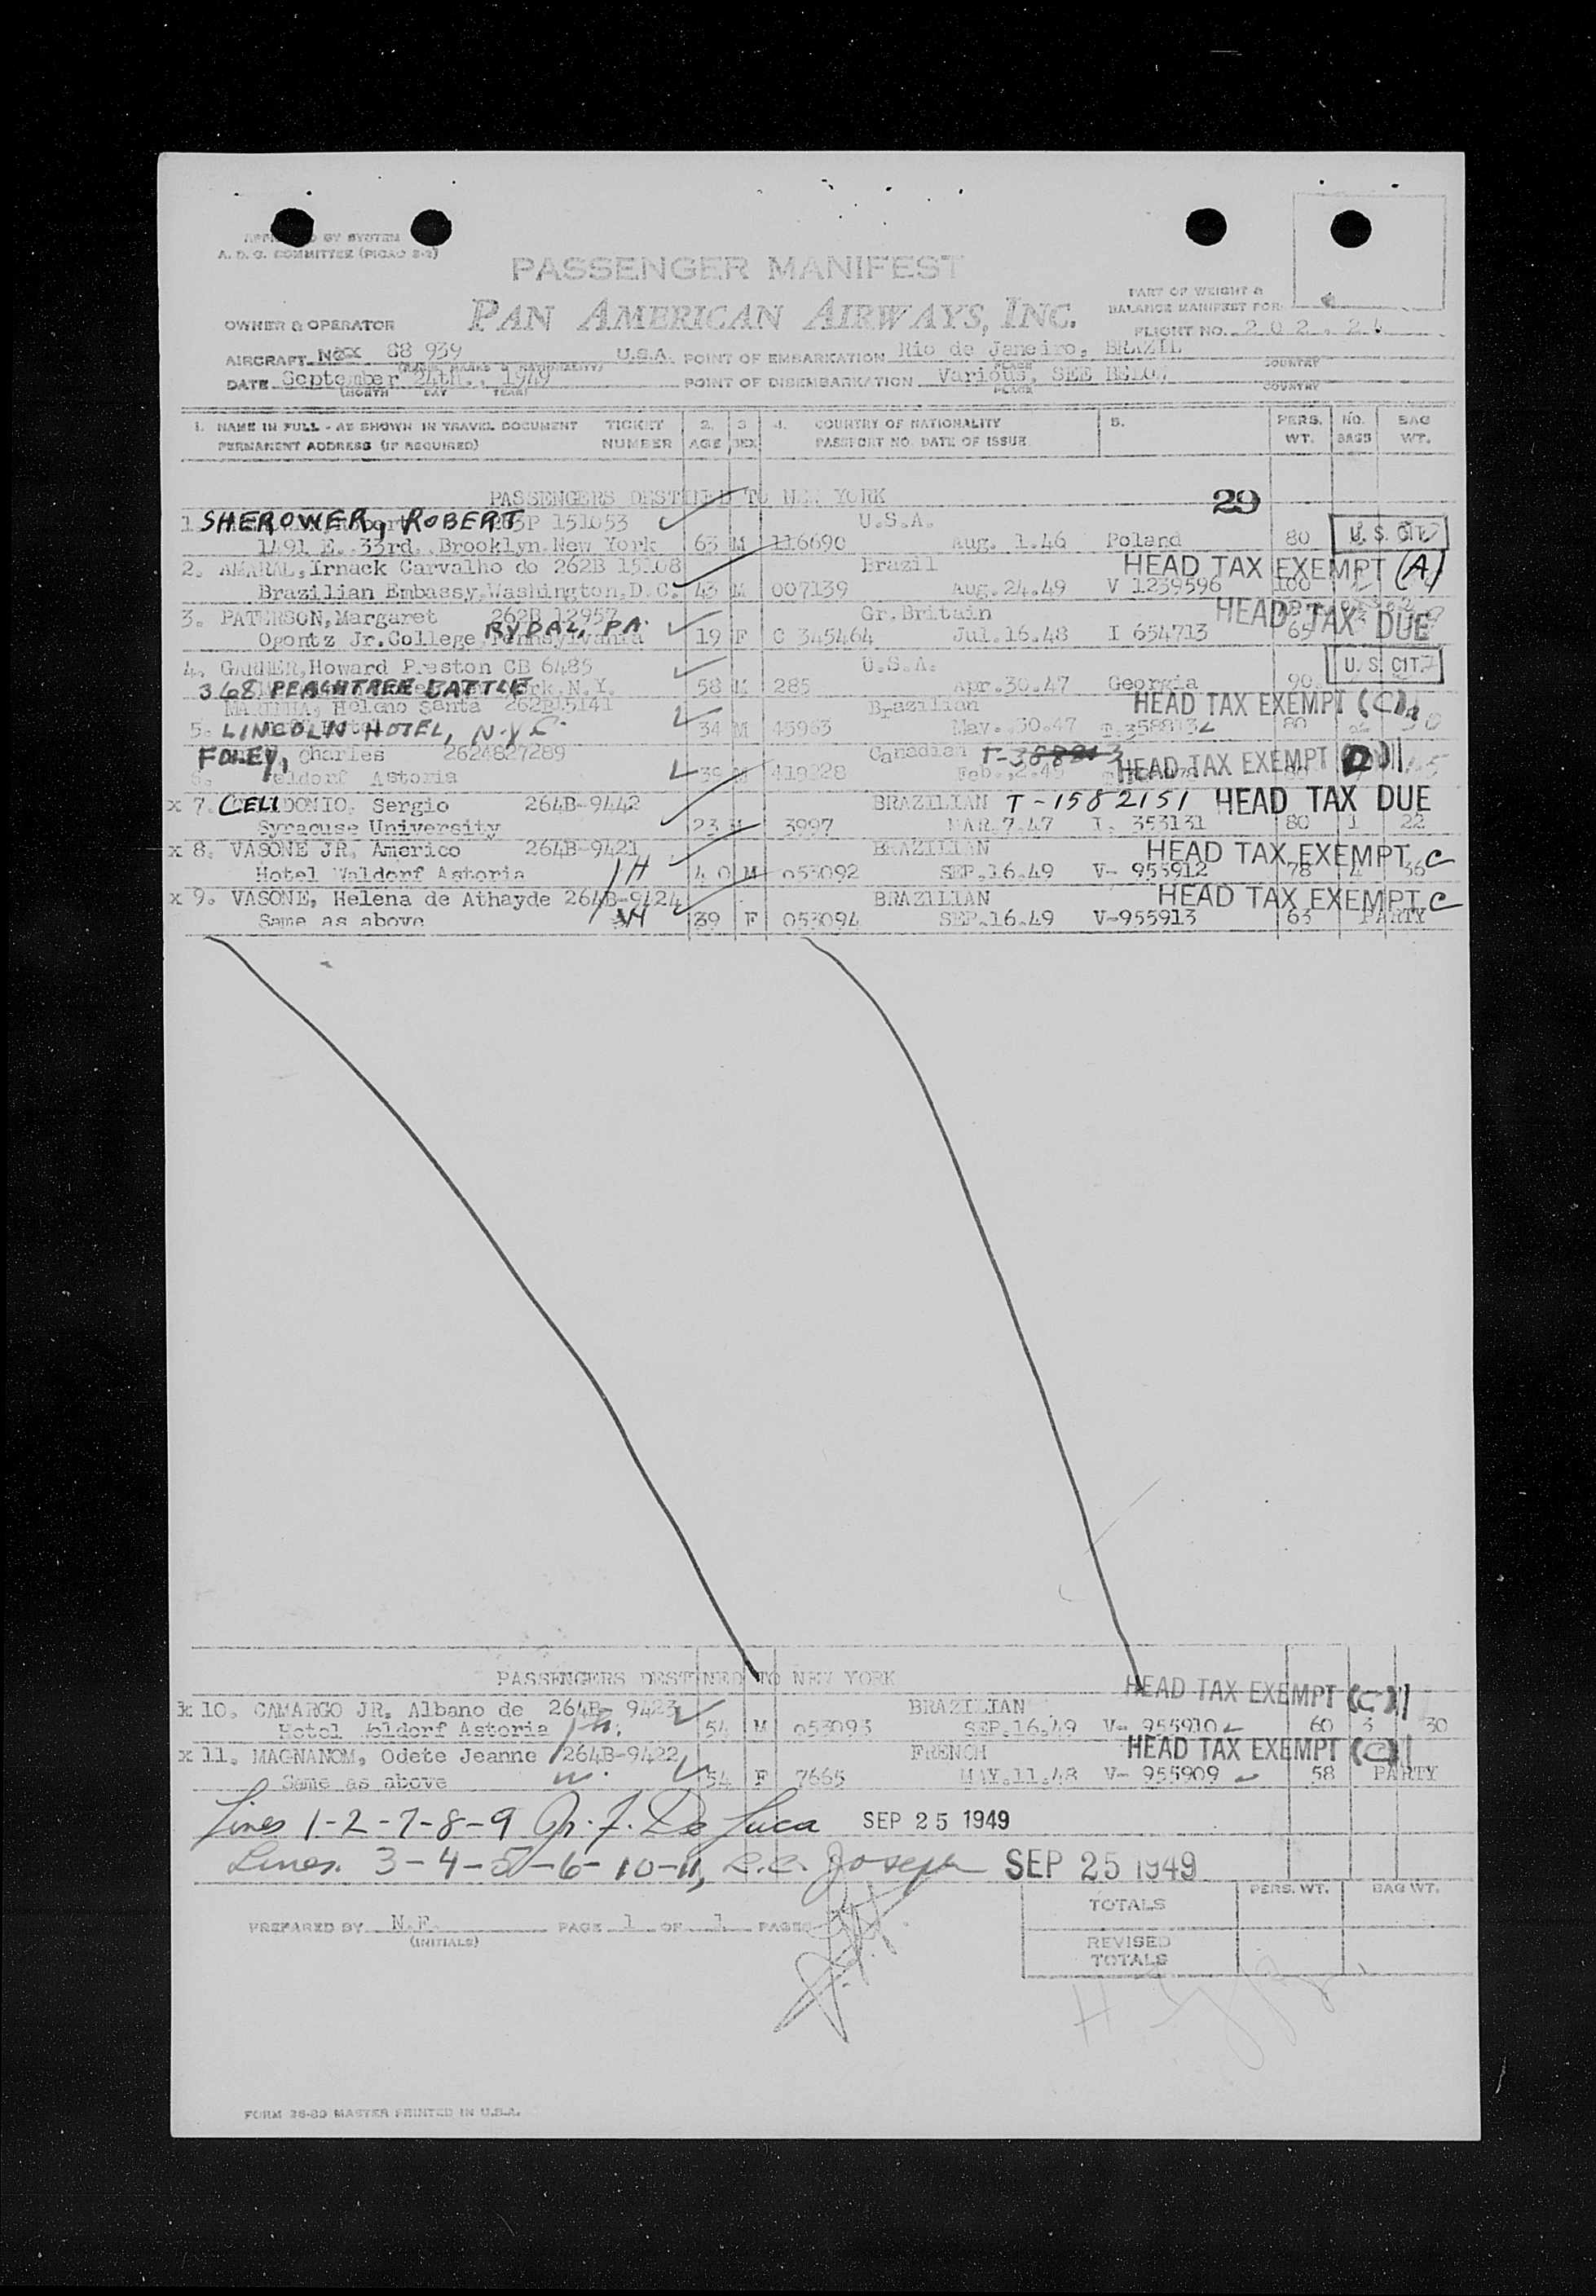 APPROVED BY SYSTEM
A. D. C. COMMITTEE (PICAO 2-2)
PASSENGER MANIFEST
PAN AMERICAN AIRWAYS, INC.
PART OF WEIGHT &
BALANCE MANIFEST FOR
OWNER & OPERATOR
FLIGHT NO. 202.24
AIRCRAFT NCXX 88 939 U.S.A. POINT OF EMBARKATION Rio de Janeiro, BRAZIL
(MARKS & NATIONALITY) PLACE COUNTRY
DATE September 24th., 1949 POINT OF DISEMBARKATION Various, SEE BELOW
(MONTH DAY YEAR) PLACE COUNTRY
1. NAME IN FULL - AS SHOWN IN TRAVEL DOCUMENT TICKET 2. 3 4. COUNTRY OF NATIONALITY 5. PERS. NO. BAG
PERMANENT ADDRESS (IF REQUIRED) NUMBER AGE SEX PASSPORT NO. DATE OF ISSUE WT. BAGS WT.
PASSENGERS DESTINED TO NEW YORK 29
1. SHEROWER, ROBERT 151053 U.S.A.
1491 E. 33rd. Brooklyn New York 63 M 116690 Aug. 1.46 Poland 80 U. S. CIT.
2. AMARAL, Irnack Carvalho do 262B 15108 Brazil HEAD TAX EXEMPT (A)
Brazilian Embassy, Washington, D.C. 43 M 007139 Aug.24.49 V 1239596 100
3. PATERSON, Margaret 262B 12957 Gr.Britain HEAD TAX DUE
Ogontz Jr.College, Pennsylvania RYDAL, PA. 19 F C 345464 Jul.16.48 I 654713 65
4. GARNER, Howard Preston CB 6485 U.S.A. U. S. CIT.
368 PEACHTREE BATTLE N.Y. 58 M 285 Apr.30.47 Georgia 90
MARINHA, Heleno Santa 262B15141 Brazilian HEAD TAX EXEMPT (C)
5. LINCOLN HOTEL, N.Y.C. 34 M 45963 May.30.47 80
FOLEY, Charles 2624827289 Canadian HEAD TAX EXEMPT
Waldorf Astoria 39 M Feb.
x 7. CELIDONIO, Sergio 264B-9442 BRAZILIAN T-1582151 HEAD TAX DUE
Syracuse University 23 M 3997 MAR.7.47 I. 353131 80 1 22
x 8. VASONE JR, Americo 264B-9421 BRAZILIAN HEAD TAX EXEMPT C
Hotel Waldorf Astoria 40 M 053092 SEP.16.49 V- 955912 78 4 36
x 9. VASONE, Helena de Athayde 264B-9424 BRAZILIAN HEAD TAX EXEMPT C
Same as above 39 F 053094 SEP.16.49 V-955913 63 PARTY
PASSENGERS DESTINED TO NEW YORK
x 10. CAMARGO JR. Albano de 264B- 9423 BRAZILIAN HEAD TAX EXEMPT (C)
Hotel Waldorf Astoria 54 M 053093 SEP.16.49 V- 955910 60 3 30
x 11. MAGNANOM, Odete Jeanne 264B-9422 FRENCH HEAD TAX EXEMPT (C)
Same as above 54 F 7665 MAY.11.48 V- 955909 58 PARTY
Lines 1-2-7-8-9 De Luca SEP 25 1949
Lines. 3-4-5-6-10-11, Joseph SEP 25 1949
TOTALS PERS. WT. BAG WT.
PREPARED BY N.F. PAGE 1 OF 1 PAGES
(INITIALS)
REVISED
TOTALS
FORM 26-80 MASTER PRINTED IN U.S.A.